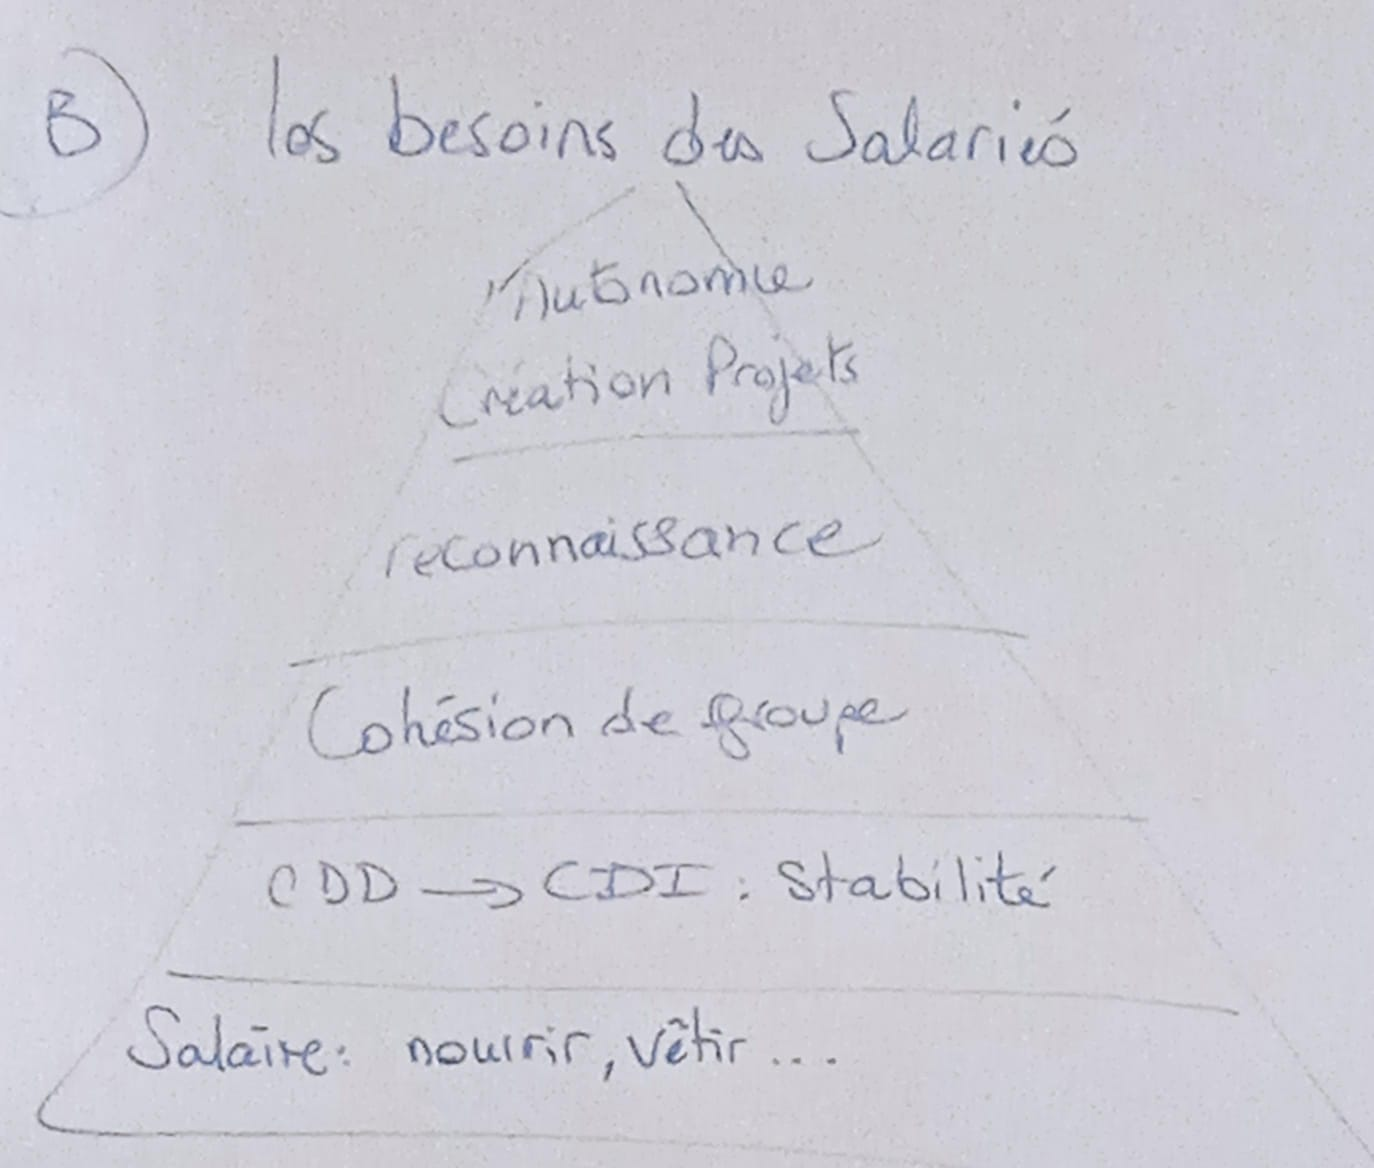 B) les besoins des Salariés
Autonomie
Création Projets
reconnaissance
Cohésion de groupe
CDD → CDI : Stabilité
Salaire : nourrir, vêtir ....